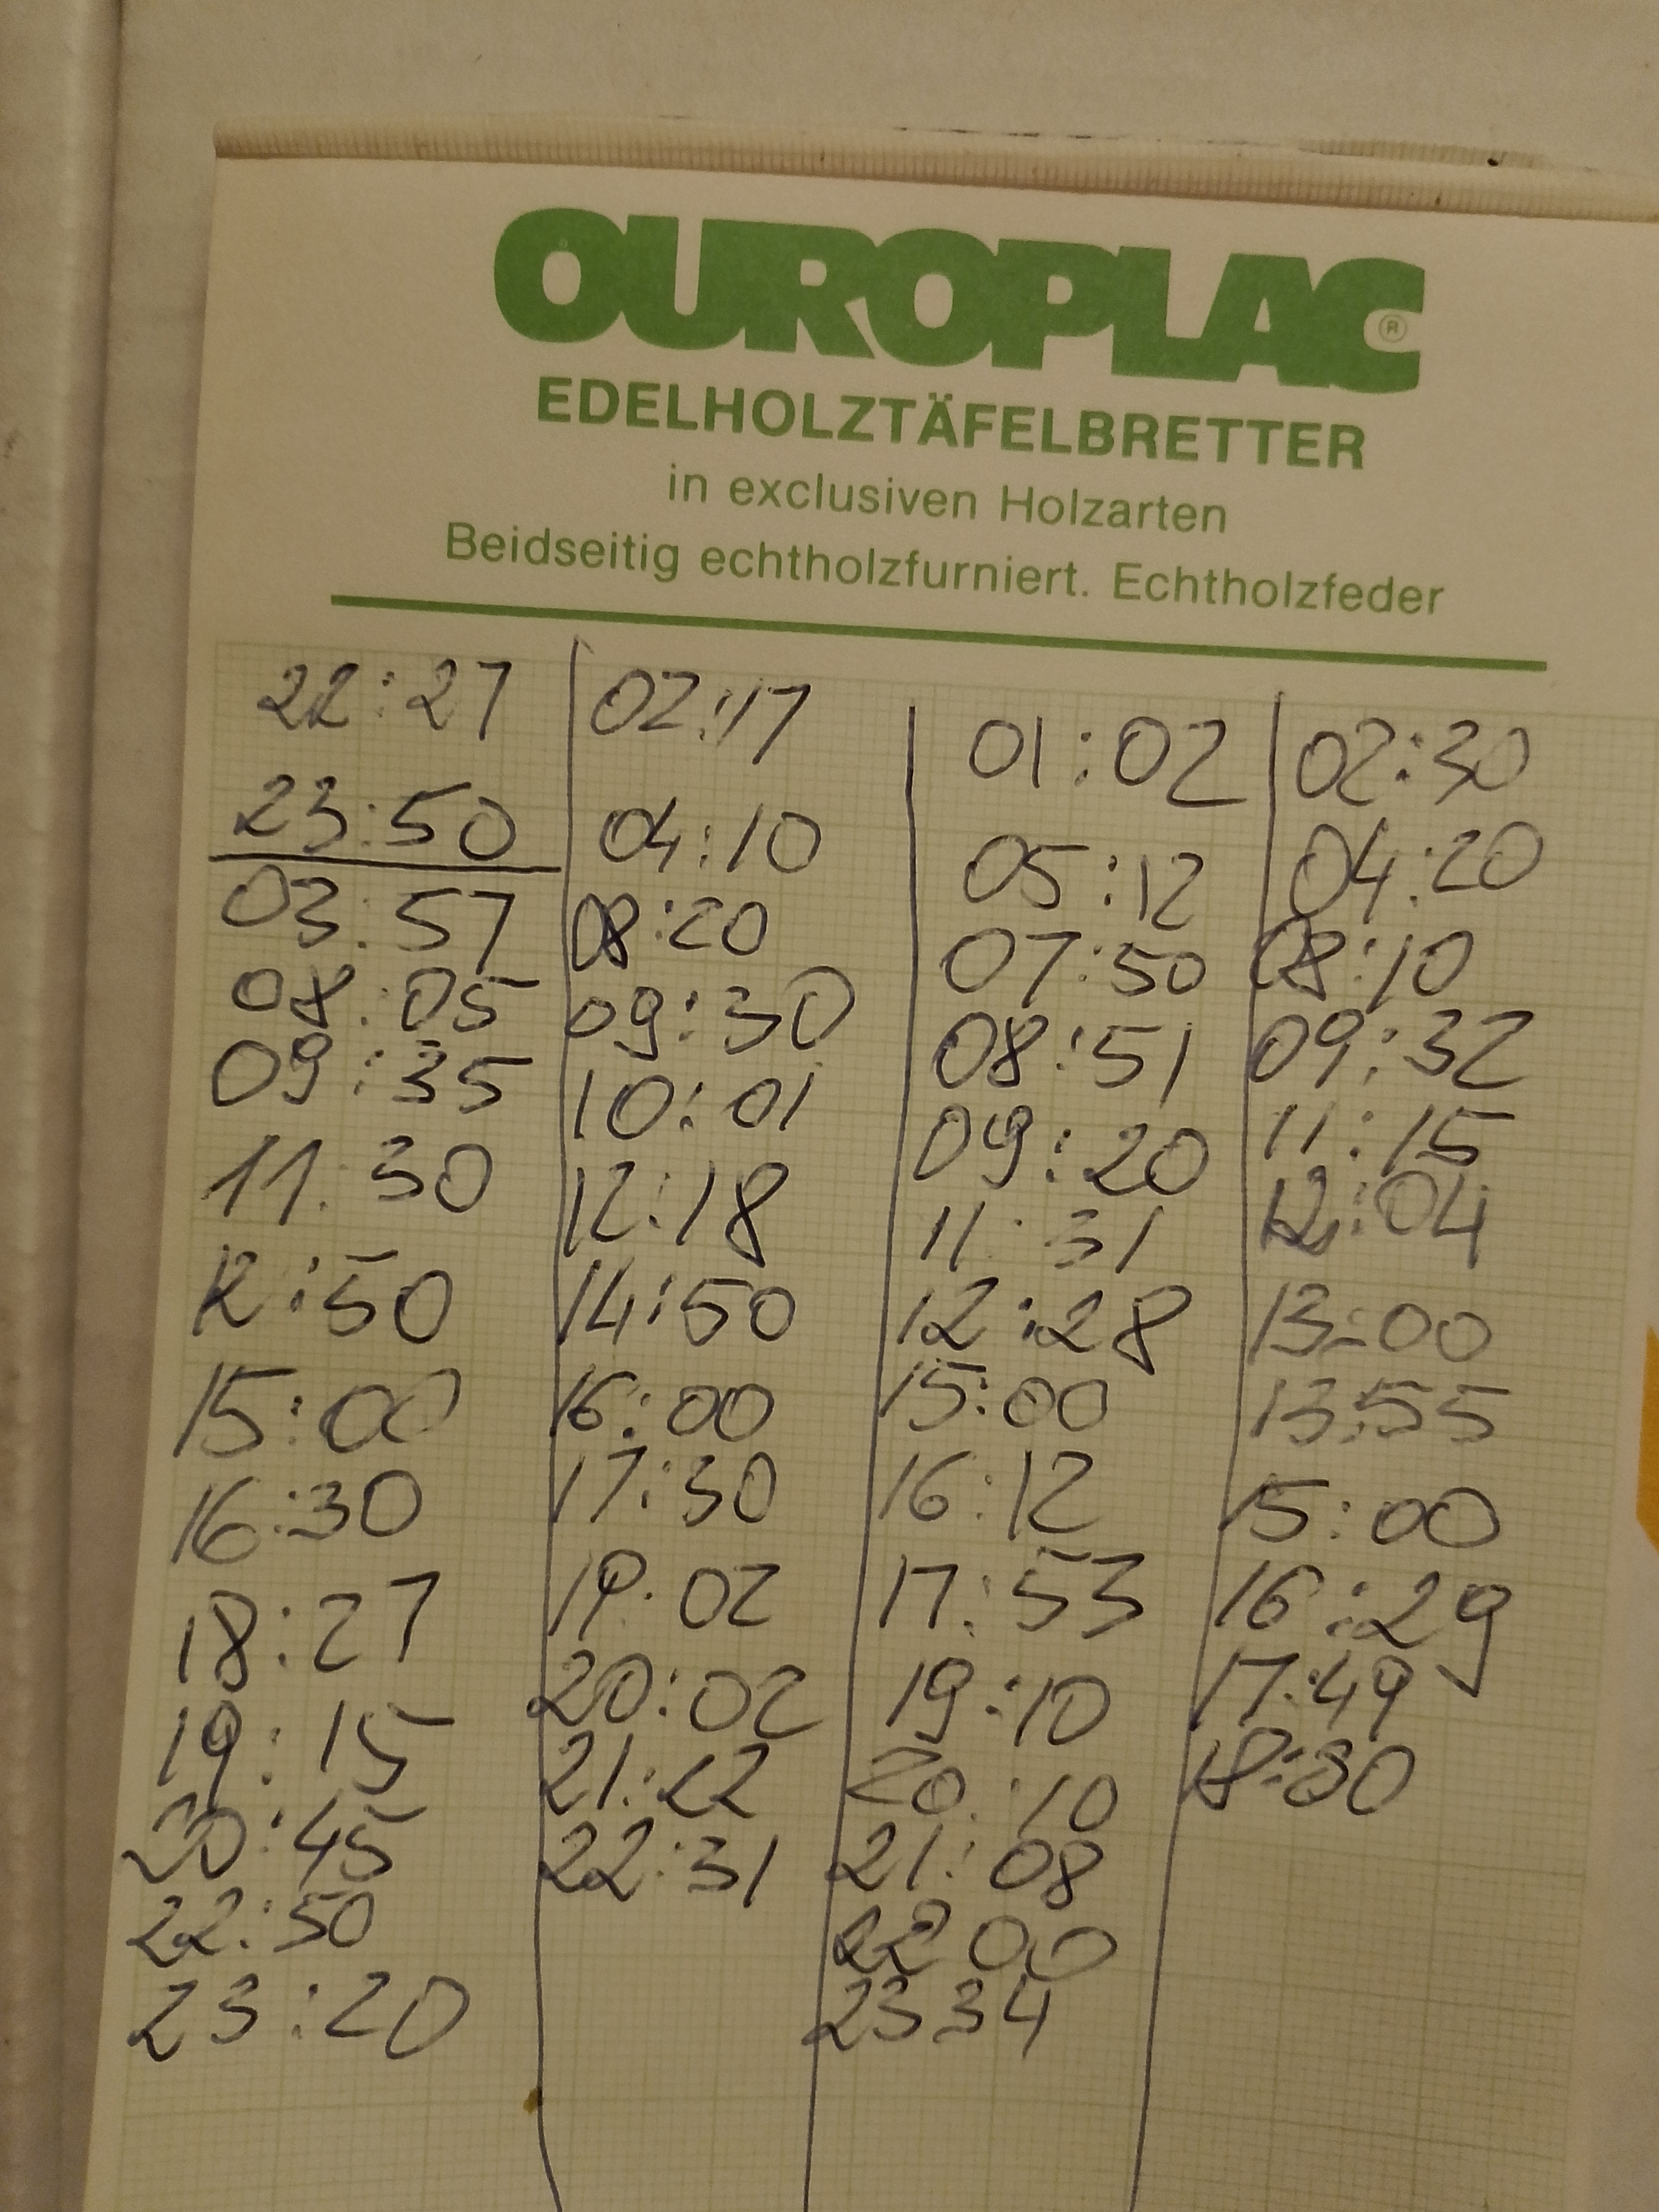 OUROPLAC®
EDELHOLZTÄFELBRETTER
in exclusiven Holzarten
Beidseitig echtholzfurniert. Echtholzfeder
22:27
23:50
03:57
08:05
09:35
11:30
12:50
15:00
16:30
18:27
19:15
20:45
22:50
23:20
02:17
04:10
08:20
09:30
10:01
12:18
14:50
16:00
17:30
19:02
20:02
21:22
22:31
01:02
05:12
07:50
08:51
09:20
11:31
12:28
15:00
16:12
17:53
19:10
20:10
21:08
22 00
23 34
02:30
04:20
08:10
09:32
11:15
12:04
13:00
13:55
15:00
16:29
17:49
18:30